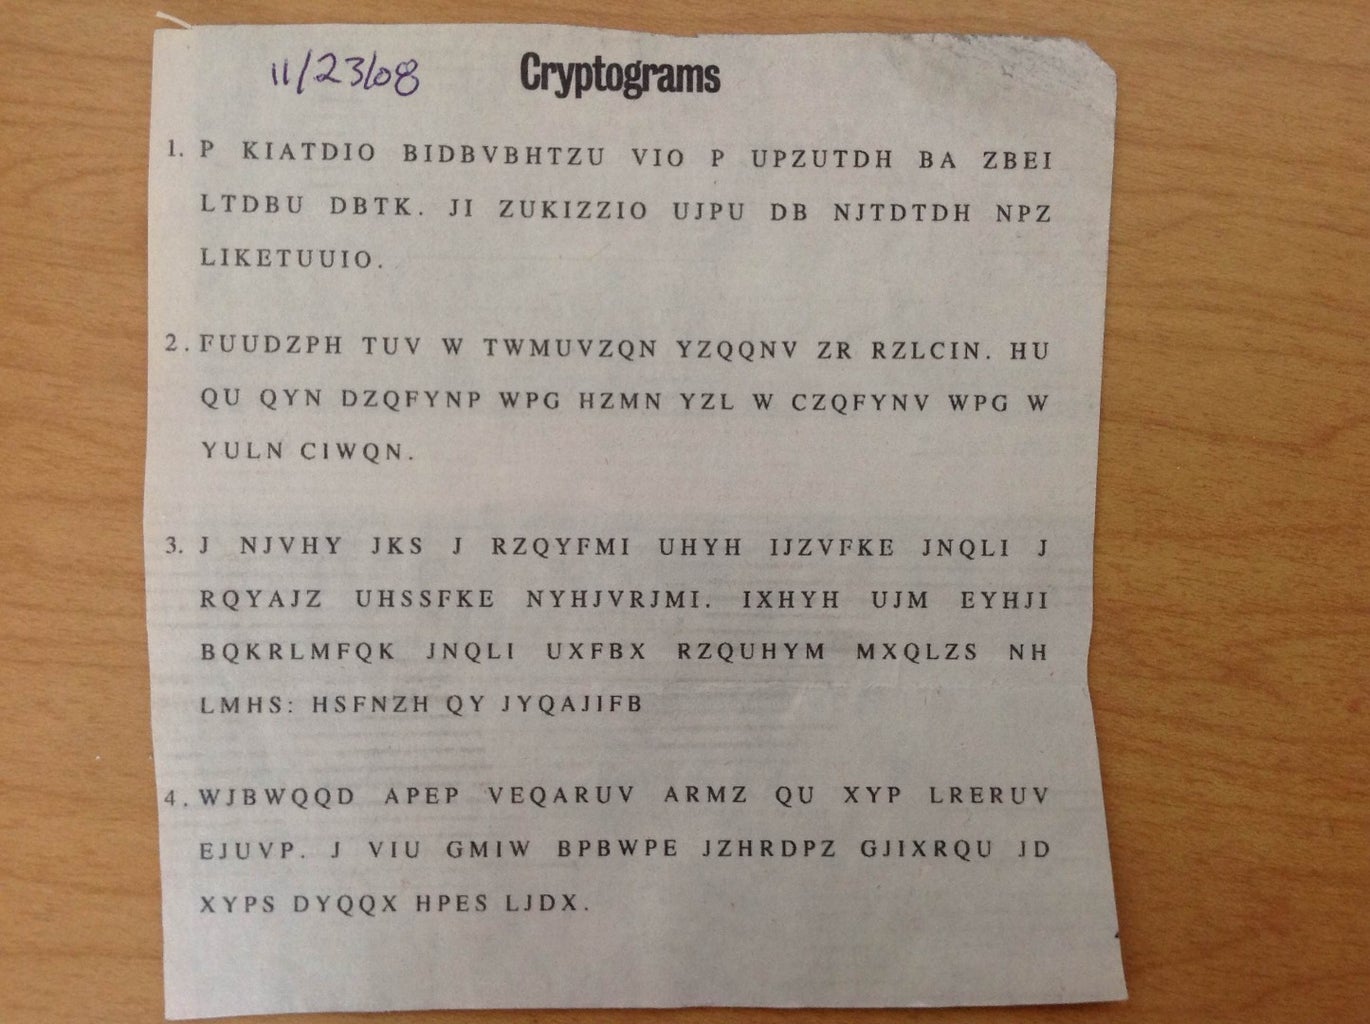 11/23/08 Cryptograms
1. P KIATDIO BIDBVBHTZU VIO P UPZUTDH BA ZBEI
LTDBU DBTK. JI ZUKIZZIO UJPU DB NJTDTDH NPZ
LIKETUUIO.
2. FUUDZPH TUV W TWMUVZQN YZQQNV ZR RZLCIN. HU
QU QYN DZQFYNP WPG HZMN YZL W CZQFYNV WPG W
YULN CIWQN.
3. J NJVHY JKS J RZQYFMI UHYH IJZVFKE JNQLI J
RQYAJZ UHSSFKE NYHJVRJMI. IXHYH UJM EYHJI
BQKRLMFQK JNQLI UXFBX RZQUHYM MXQLZS NH
LMHS: HSFNZH QY JYQAJIFB
4. WJBWQQD APEP VEQARUV ARMZ QU XYP LRERUV
EJUVP. J VIU GMIW BPBWPE JZHRDPZ GJIXRQU JD
XYPS DYQQX HPES LJDX.